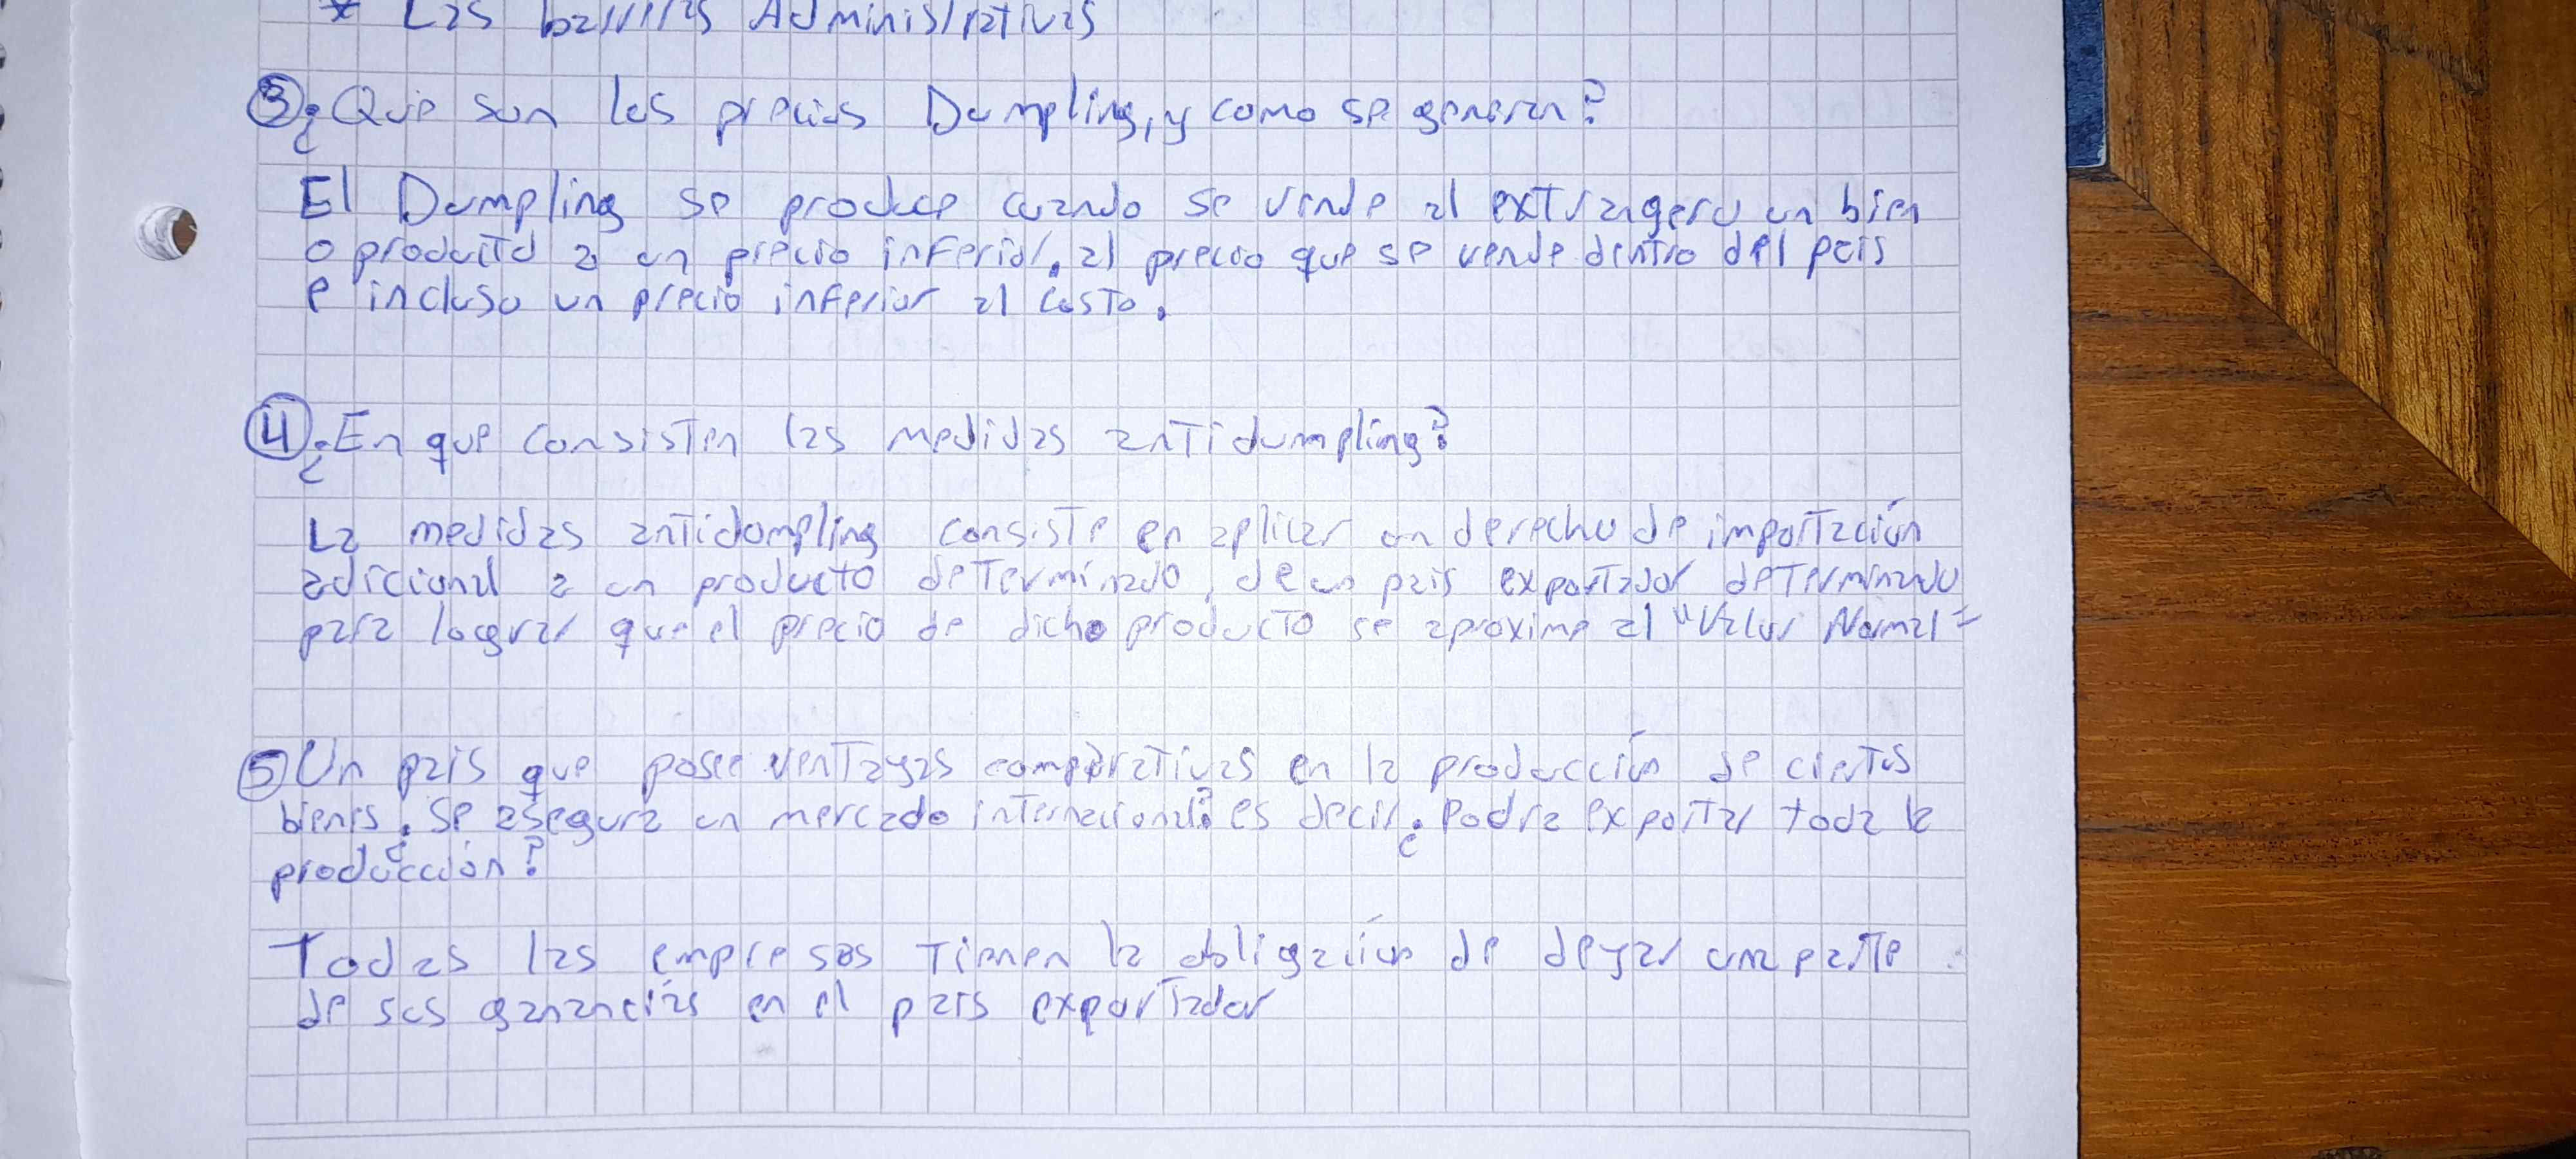 * Las barreras Administrativas
③ ¿Que son los precios Dumpling, y como se generan?
El Dumpling se produce cuando se vende al extrangero un bien
o producto a un precio inferior, al precio que se vende dentro del pais
e incluso un precio inferior al costo.
④ ¿En que consisten las medidas antidumpling?
La medidas antidumpling consiste en aplicar un derecho de importación
adicional a un producto determinado, de un pais exportador determinado
para lograr que el precio de dicho producto se aproxime al "Valor Normal"
⑤ Un pais que posee ventayas comparativas en la producción de ciertos
bienes, ¿se asegura un mercado internacional? es decir ¿Podria exportar toda la
producción?
Todas las empresas tienen la obligación de deyar una parte
de sus ganancias en el pais exportador